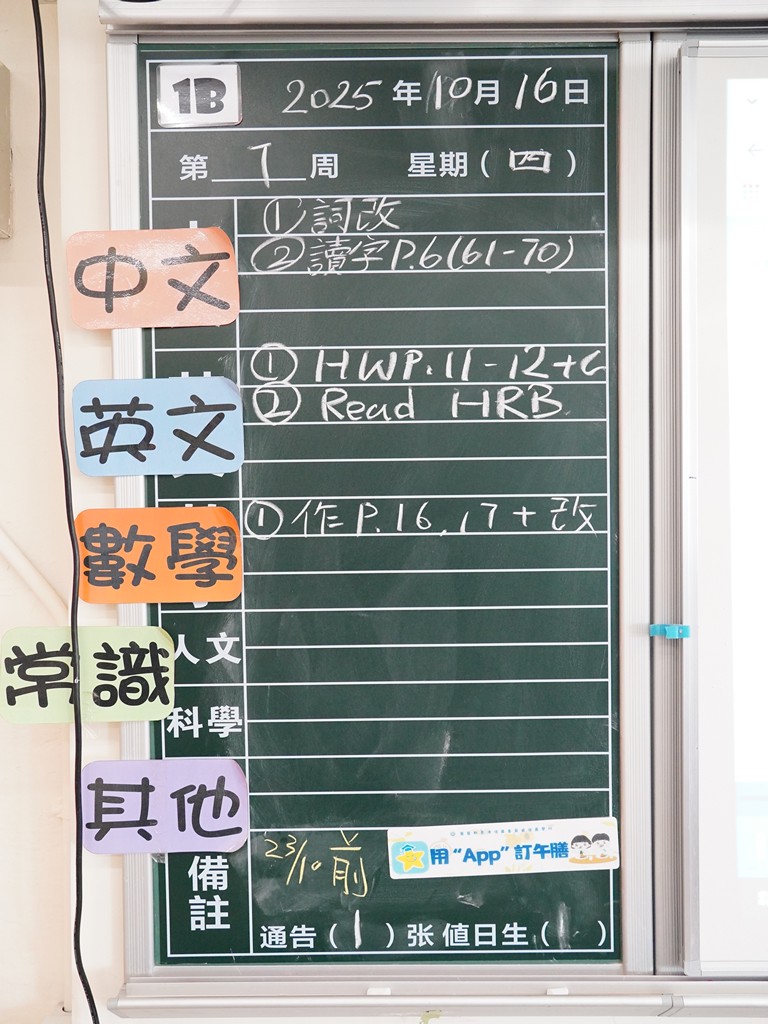 1B 2025 年 10 月 16 日
第 7 周 星期 ( 四 )
① 詞改
中文 ② 讀字 P.6 (61-70)
① HWP.11-12+C
英文 ② Read HRB
數學 ① 作 P.16, 17 + 改
人文
常識
科學
其他
23/10 前
用“App”訂午膳
備註
通告 ( 1 ) 张 值日生 ( )